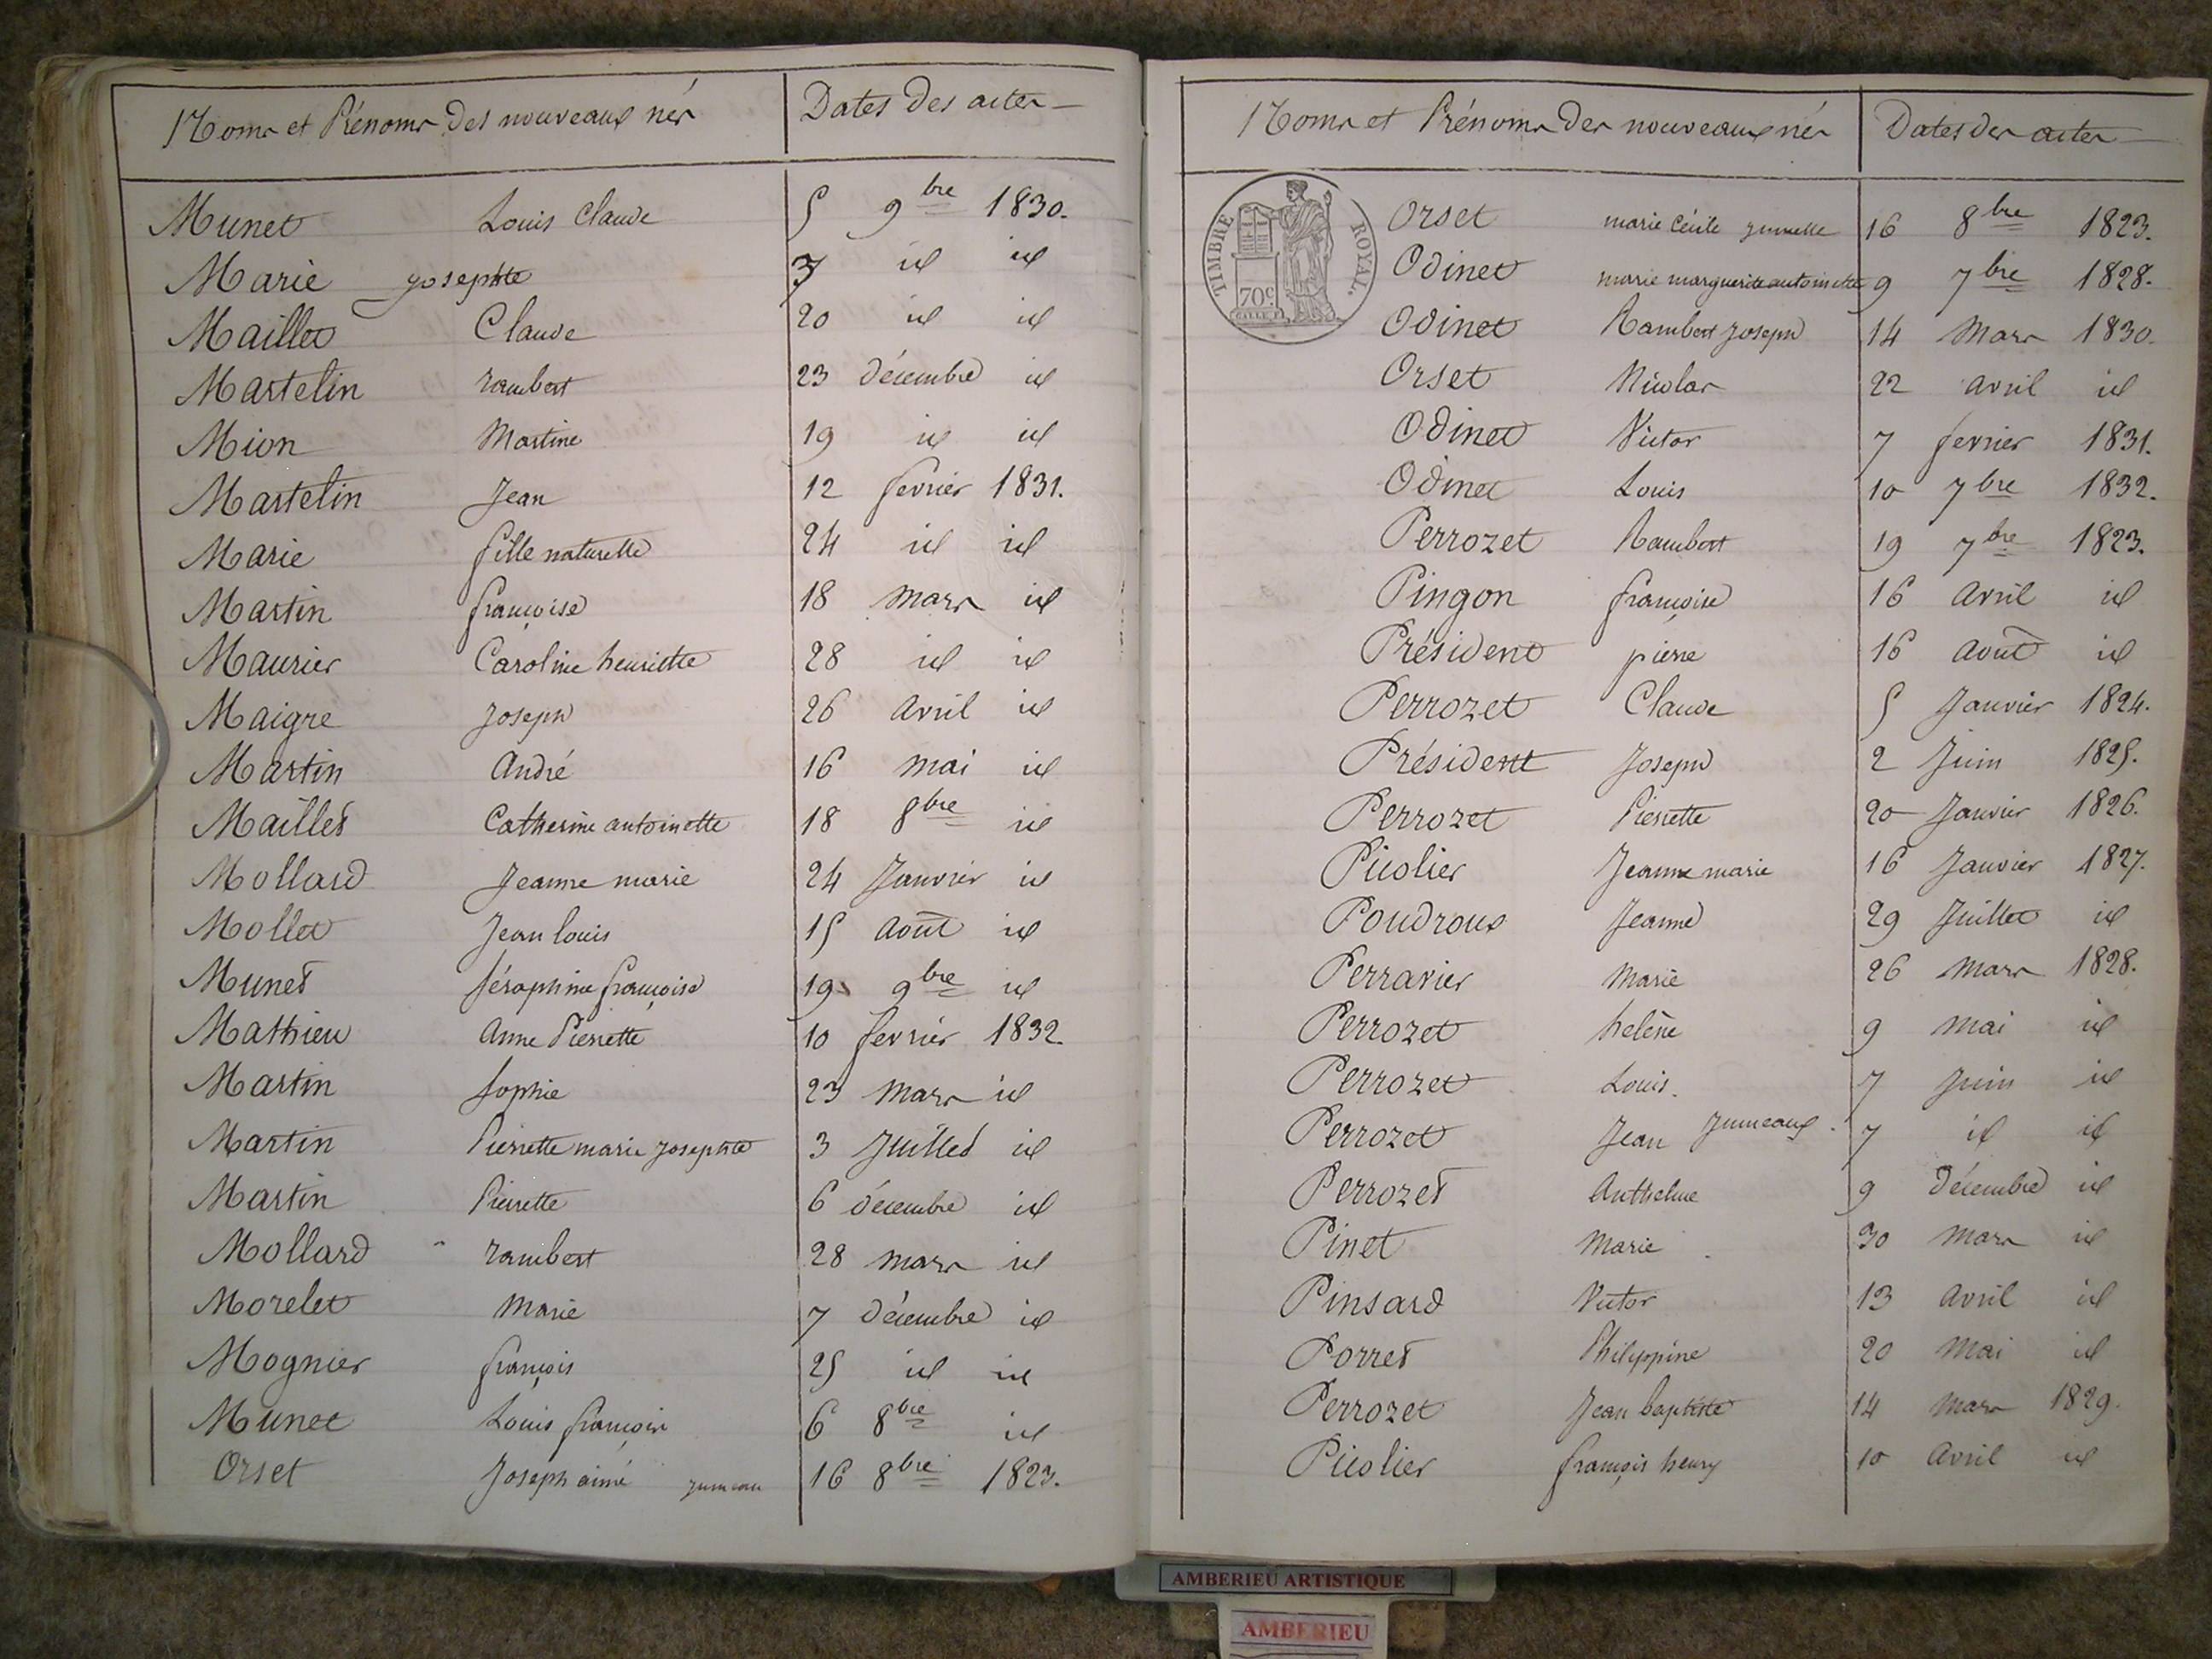 Noms et Prénoms Des nouveaux nés Dates Des actes
Munet Louis Claude 5 9bre 1830.
Marie josephte 7 id id
Maillet Claude 20 id id
Martelin rambert 23 décembre id
Mion Martine 19 id id
Martelin Jean 12 fevrier 1831.
Marie fille naturelle 24 id id
Martin françoise 18 Mars id
Maurier Caroline henriette 28 id id
Maigre Joseph 26 Avril id
Martin André 16 Mai id
Maillet Catherine antoinette 18 8bre id
Mollard Jeanne marie 24 Janvier id
Mollet Jean louis 15 Août id
Munet Séraphine françoise 19 9bre id
Mathieu Anne Pierrette 10 fevrier 1832.
Martin Sophie 23 Mars id
Martin Pierrette marie Josephte 3 Juillet id
Martin Pierrette 6 décembre id
Mollard rambert 28 mars id
Morelet Marie 7 décembre id
Mognier françois 25 id id
Munet Louis françois 6 8bre id
Orset Joseph aimé jumeau 16 8bre 1823.
Noms et Prénoms des nouveaux nés Dates des actes
TIMBRE ROYAL.
70c
Orset marie Cécile jumelle 16 8bre 1823.
Odinet marie marguerite antoinette 9 7bre 1828.
Odinet Rambert Joseph 14 Mars 1830.
Orset Nicolas 22 Avril id
Odinet Victor 7 fevrier 1831.
Odinet Louis 10 7bre 1832.
Perrozet Rambert 19 7bre 1823.
Pingon françoise 16 Avril id
Président pierre 16 Août id
Perrozet Claude 5 Janvier 1824.
Président Joseph 2 Juin 1825.
Perrozet Pierrette 20 Janvier 1826.
Picolier Jeanne marie 16 Janvier 1827.
Poudroux Jeanne 29 Juillet id
Perravier Marie 26 Mars 1828.
Perrozet helène 9 Mai id
Perrozet Louis. 7 Juin id
Perrozet Jean Jumeaux. 7 id id
Perrozet Anthelme 9 décembre id
Pinet Marie 30 Mars id
Pinsard Victor 13 Avril id
Porret Philippine 20 Mai id
Perrozet Jean baptiste 14 Mars 1829.
Picolier françois henry 10 Avril id
AMBERIEU ARTISTIQUE
AMBERIEU